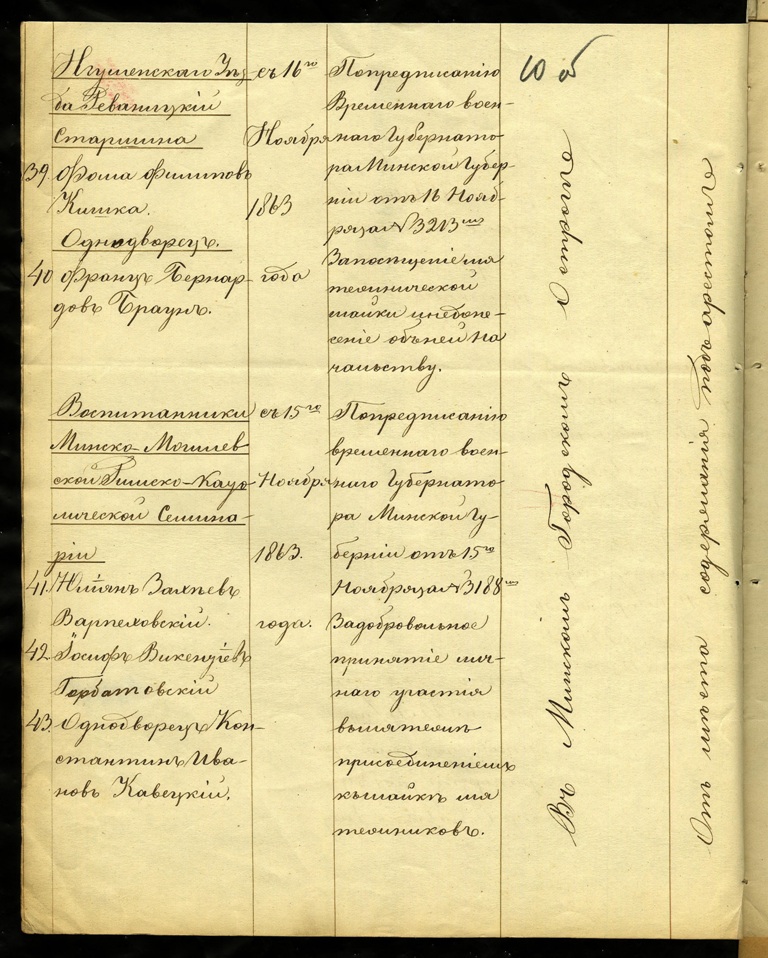 Игуменскаго Уѣз-
да Реваничскій
Старшина
39. Ѳома Филиповъ
Кишка.
Однодворецъ.
40 Францъ Бернар-
довъ Браунъ.
съ 16го
Ноября
1863
года
Попредписанію
Временнаго воен-
наго Губернато-
ра Минской Губер-
ніи отъ 16 Нояб-
ря за № 3213мъ
За посещеніе мя
тежнической
шайки и недоне-
сеніе объ ней На
чальству.
Воспитанники
Минско-Могилев
ской Римско-Като
лической Семина-
ріи
41. Юліянъ
Варпеховскій.
42. Іосифъ Викентіевъ
Горбатовскій
43. Однодворецъ Кон-
стантинъ Ива-
новъ Кавецкій.
съ 15го
Ноября
1863.
года.
Попредписанію
временнаго воен-
наго Губернато
ра Минской Гу-
берніи отъ 15го
Ноября за № 3188мъ
За добровольное
принятіе лич-
наго участія
въ мятежѣ
присоединеніемъ
къ шайкѣ мя
тежниковъ.
10 об
Въ Минскомъ Городскомъ Острогѣ
Отъ мѣста содержанія подъ арестомъ